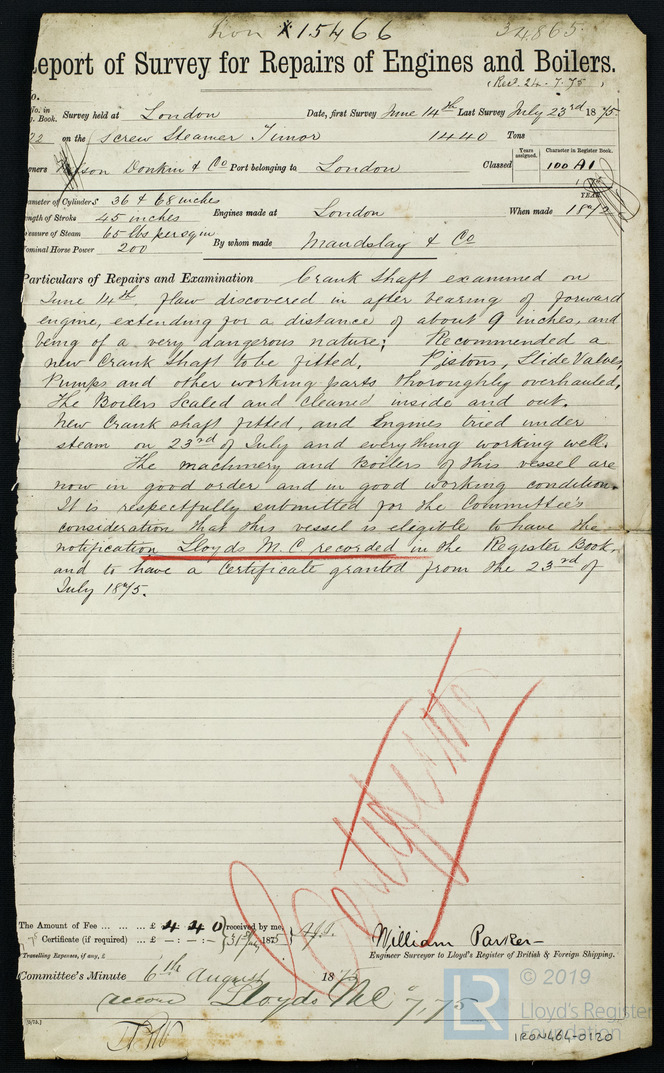 Iron 15466 34865
eport of Survey for Repairs of Engines and Boilers.
(Rec'd. 24.7.75)
o.
No. in g. Book. Survey held at London Date, first Survey June 14th Last Survey July 23rd 1875
22 on the Screw Steamer Timor 1440 Tons
wners son Donkin & Co Port belonging to London Classed Years assigned. Character in Register Book. 100 A1
YEAR
iameter of Cylinders 36 & 68 inches
ength of Stroke 45 inches Engines made at London When made 1872
ressure of Steam 65 lbs per sq in
ominal Horse Power 200 By whom made Maudslay & Co
Particulars of Repairs and Examination Crank Shaft examined on
June 14th, flaw discovered in after bearing of forward
engine, extending for a distance of about 9 inches, and
being of a very dangerous nature; Recommended a
new Crank Shaft to be fitted. Pistons, Slide Valves,
Pumps and other working parts thoroughly overhauled.
The Boilers Scaled and cleaned inside and out.
New Crank shaft fitted, and Engines tried under
steam on 23rd of July and everything working well.
The machinery and Boilers of this vessel are
now in good order and in good working condition.
It is respectfully submitted for the Committee's
consideration that this vessel is eligible to have the
notification Lloyds M.C. recorded in the Register Book,
and to have a Certificate granted from the 23rd of
July 1875.
The Amount of Fee ... ... ... £ 4 4 0 received by me,
Certificate (if required) ... £ - : - : - 31st July 1875
William Parker
Travelling Expenses, if any, £
Engineer Surveyor to Lloyd's Register of British & Foreign Shipping.
Committee's Minute 6th August 1875
Lloyds MC 7,75
© 2019
LR
Lloyd's Register
Foundation
IRON464-0120